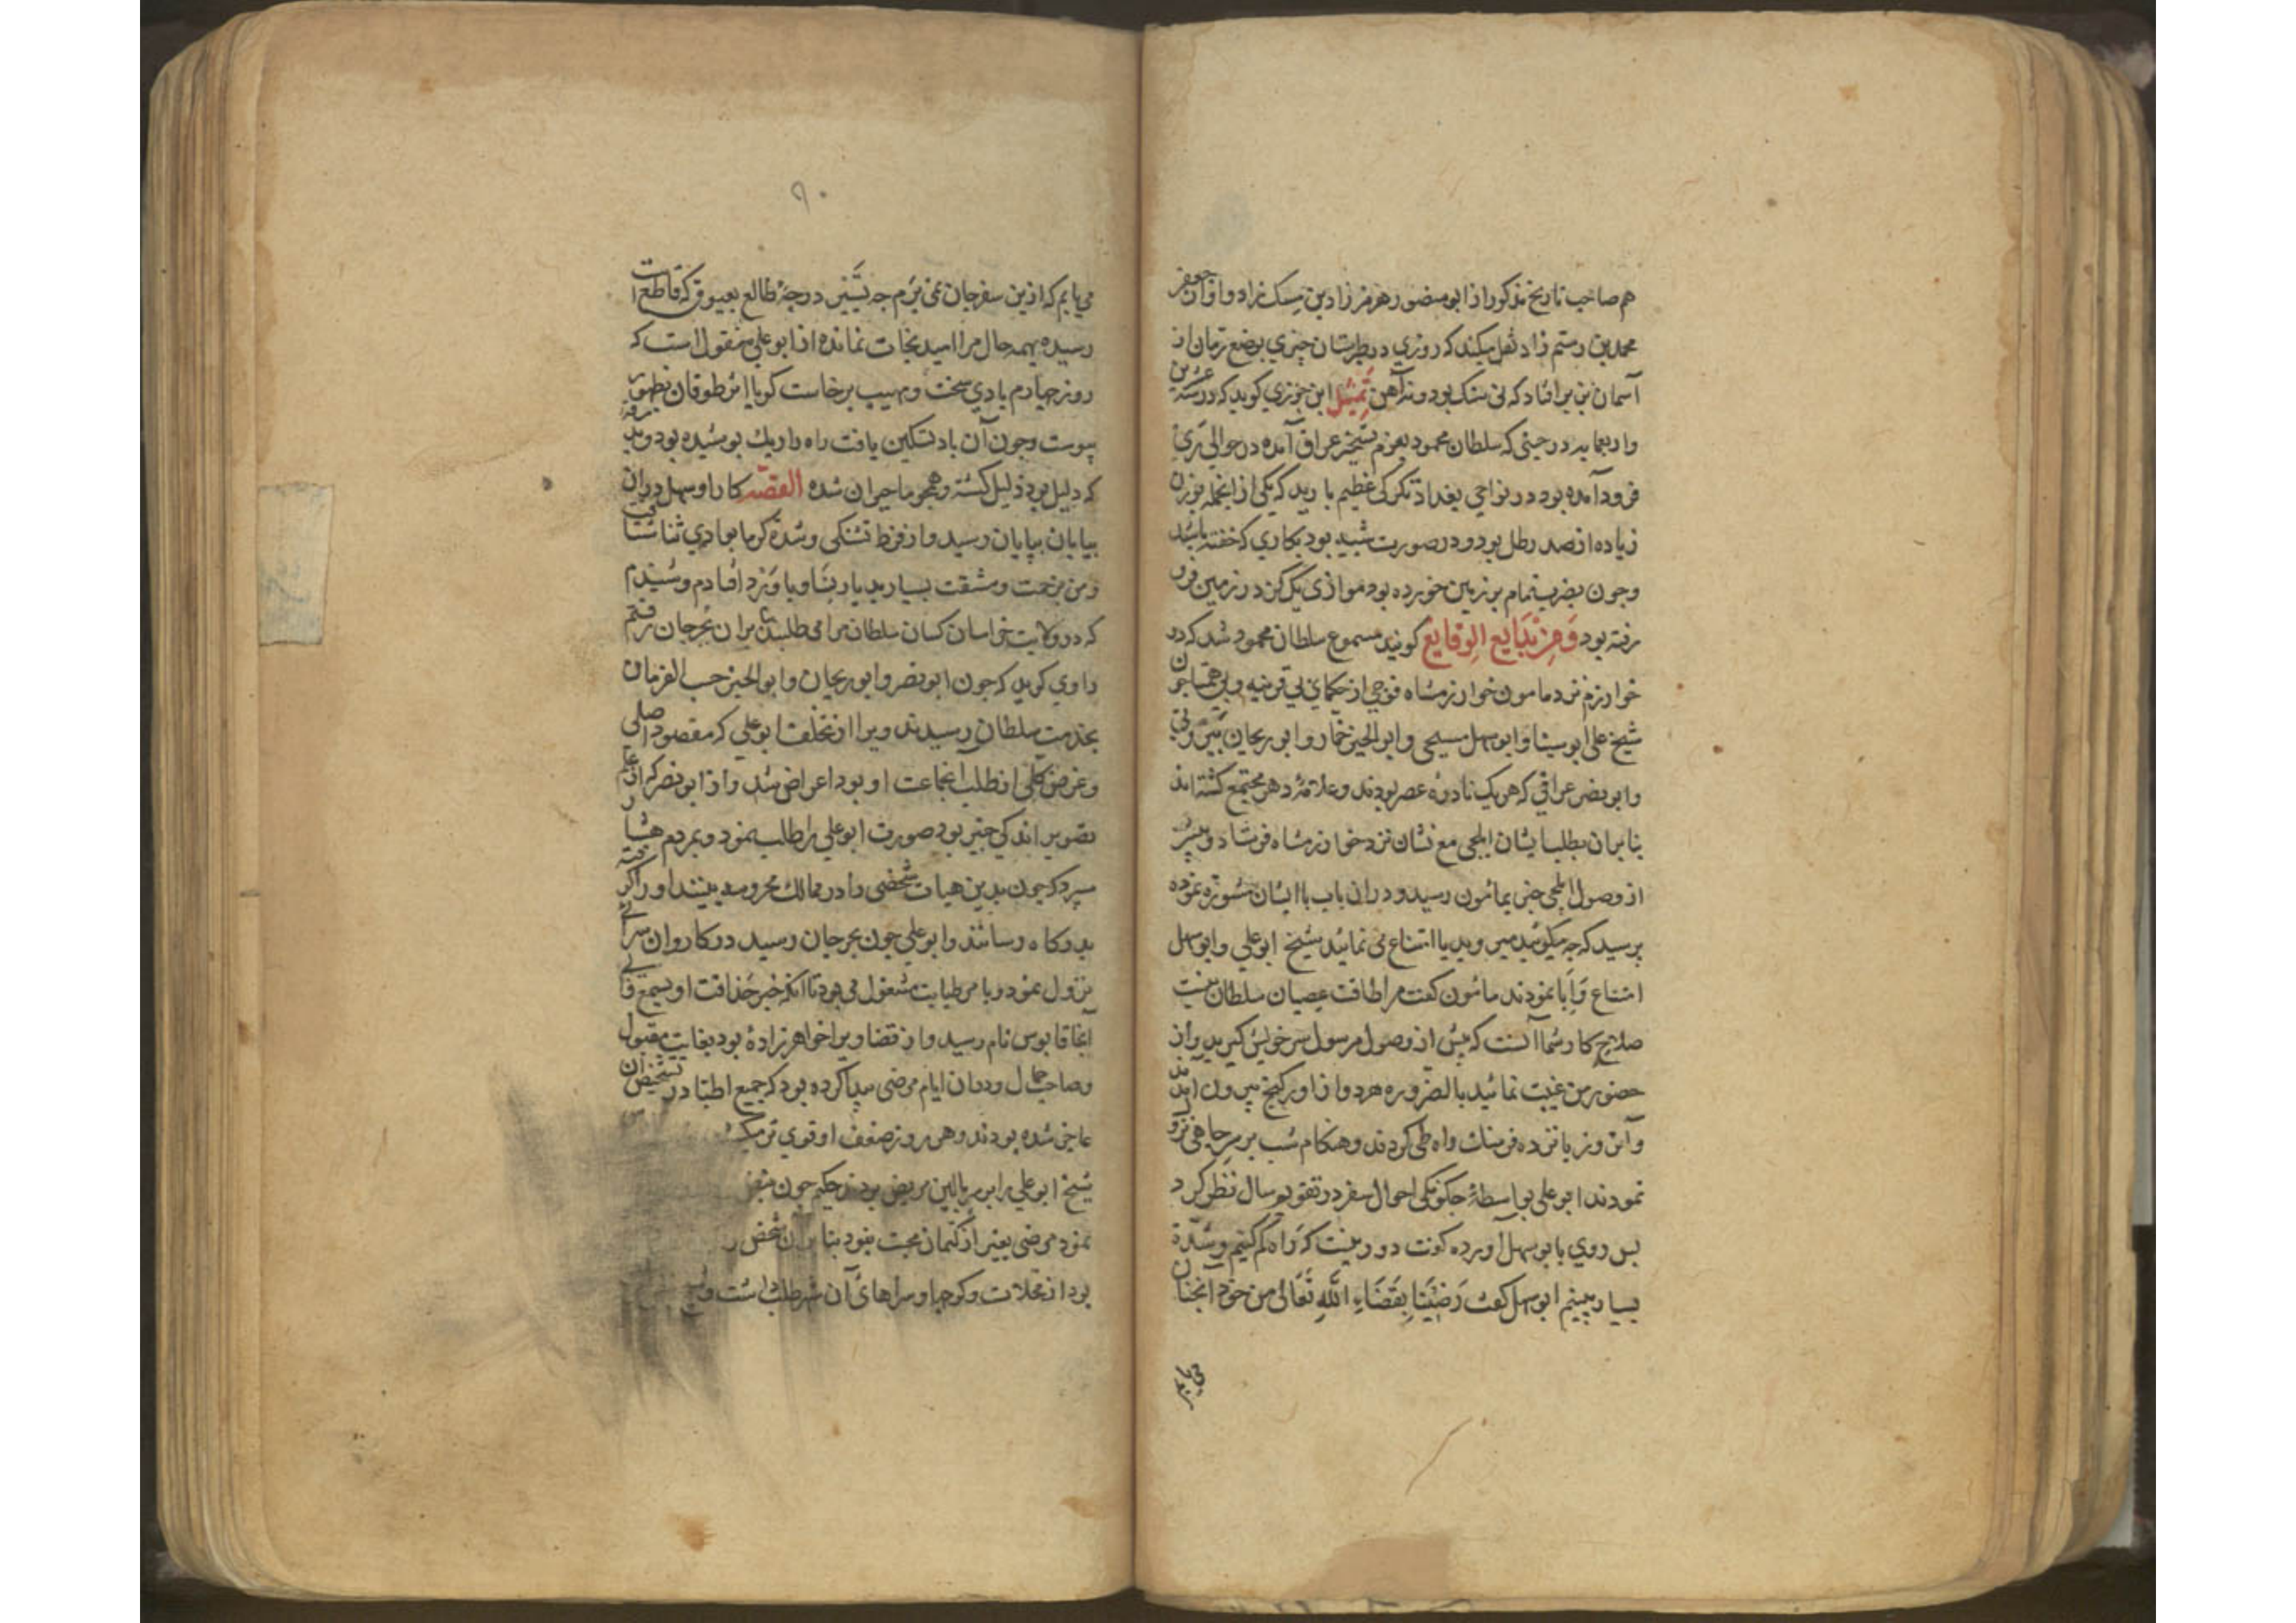 هم صاحب تاریخ مذکور از ابو منصور هرمز زاد بن مسک زاد و از جعفر
محمد بن رستم زاد نقل میکند که روزي در طبرستان چیزي بوضع ترمان از
آسمان بزیر افتاد که نی سنک بود و نه آهن تمثیل ابن جوزي کوید که در سنه عشرین
و اربعمایه در حینی که سلطان محمود بعزم تسخیر عراق آمده در حوالي ري
فرود آمده بود در نواحي بغداد تکرکی عظیم بارید که یکی از انجمله بوزن
زیاده از صد رطل بود و در صورت شبیه بود بکاري که خفته باشد
و جون بضرب تمام بر زمین خورده بود موازي یک کز در زمین فرو
رفته بود وَمِنْ بَدَایِع الوقایع کویند مسموع سلطان محمود شد که در
خوارزم نزد مامون خوارزمشاه فوجي از حکماي بي قرینه و بي همتا جون
شیخ علی ابو سینا و ابو سهل مسیحی و ابو الخیر خمار و ابو ریحان بیرونی
و ابو نصر عراقي که هر یک نادرهٔ عصر بودند و علامهٔ دهر مجتمع کشته اند
بنا بران بطلب ایشان ایلچی مع نشان نزد خوارزمشاه فرستاد و پیشتر
از وصول ایلچی خبر بمائمون رسید و دران باب با ایشان مشورة نموده
پرسید که چه میکوئید میروید یا امتناع می نمائید شیخ ابو علي و ابو سهل
امتناع وَاِبا نمودند مائمون کفت مرا طاقت عصیان سلطان نیست
صلاح کار شما آنست که پیش از وصول رسول سر خویش کیرید و از
حضور من غیبت نمائید بالضروره هر دو از اورکنج بیرون امدند
و آن روز پانزده فرسنک راه طی کردند و هنکام شب بر سر جاهی نزول
نمودند ابو علي بواسطهٔ چکونکی احوال سفر در تقویم سال نظر کرد
پس روي بابو سهل آورده کفت دور نیست که راه کم کنیم و شدّة
بسیار بینیم ابو سهل کفت رَضِیْنَا بِقَضَاءِ اللّهِ تَعَالی من خود انچنان
٩٠
می یابم که ازین سفر جان نمی برم جه تَسْییر درجهٔ طالع بعیوق که قاطع است
رسیده بهمه حال مرا امید نجات نمانده از ابو علي منقول است که
روز چهارم بادي سخت و مهیب برخاست کویا اثر طوفان بظهور
پیوست و جون آن باد تسکین یافت راه را ریک پوشیده بود و بدرقه
که دلیل بود ذلیل کشته و همچو ما حیران شده القصّه کار ابو سهل دران
بیابان بپایان رسید و از فرط تشنکی و شدة کرما بوادي فنا شتافت
و من بزحمت و مشقت بسیار بدیار نسا و باورد افتادم و شنیدم
که در ولایت خراسان کسان سلطان مرا می طلبند بنا بران بجرجان رفتم
راوي کوید که جون ابو نصر و ابو ریحان و ابو الخیر حسب الفرمان
بخدمت سلطان رسیدند ویرا از تخلف ابو علي که مقصود اصلی
و غرض کلی از طلب انجماعت او بود اعراض شد و از ابو نصر که از علم
تصویر اندکي خبیر بود صورت ابو علي را طلب نمود و بمردم هشیار
سپرد که جون بدین هیات شخصی را در ممالک محروسه بینند او را کرفته
بدرکاه رسانند و ابو علي جون بجرجان رسید در کاروان سرائے
نزول نمود و با مر طبابت مشغول می بود تا انکه خبر حذاقت او بسمع والی
آنجا قابوس نام رسید و از قضا ویرا خواهر زادهٔ بود بغایت مقبول
و صاحب جمال و دران ایام مرضی پیدا کرده بود که جمیع اطبا در تشخیص آن
عاجز شده بودند و هر روز ضعف او قوي تر میکشت
شیخ ابو علي را بر سر بالین مریض بردند حکیم جون
نمود مرضی بغیر از کتمان محبت نبود بنا بران شخص
بود از محلات و کوچها و سراهائ آن شهر طلب داشت و